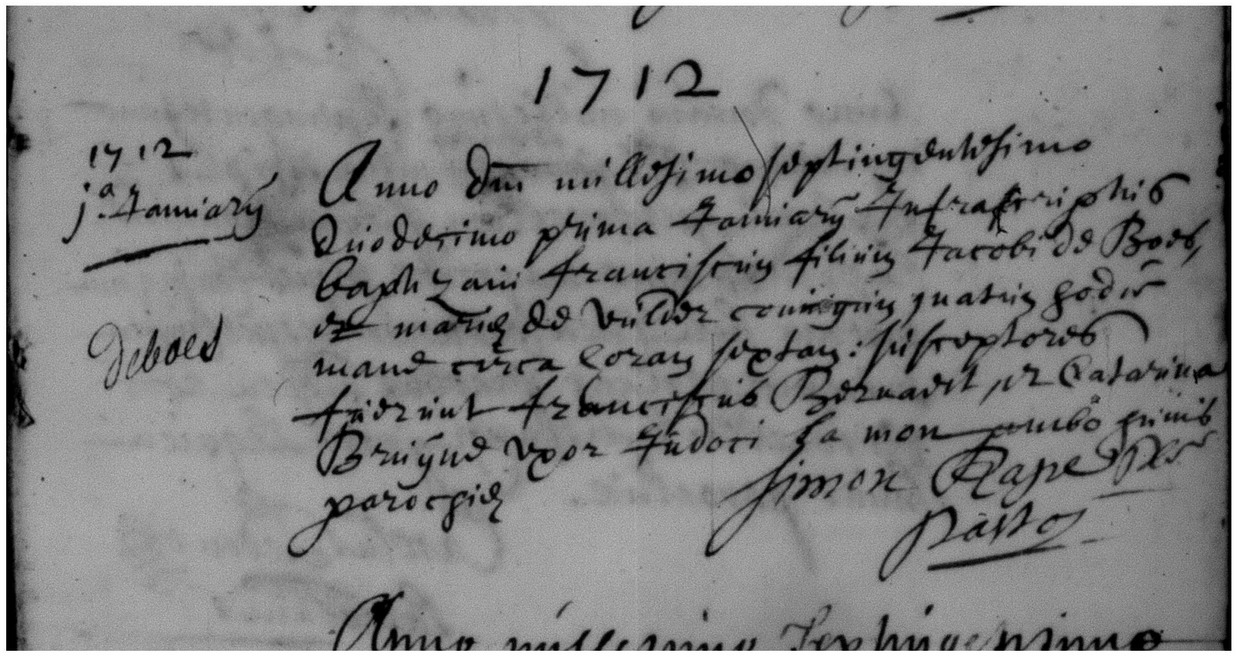 1712
1712
j.a Januarÿ
Deboes
Anno Dni millesimo septingentesimo
duodecimo prima Januarÿ Infrascriptus
baptizavi franciscum filium Jacobi de Boes,
et mariæ de vulder coniugum natum hodie
mane circa horam septam: susceptores
fuerunt franciscus Bernaert, et Catarina
Bruÿne uxor Judoci la mon ambo huius
parochiæ
Simon Pbr
Pastor
Anno millesimo Septingentesimo